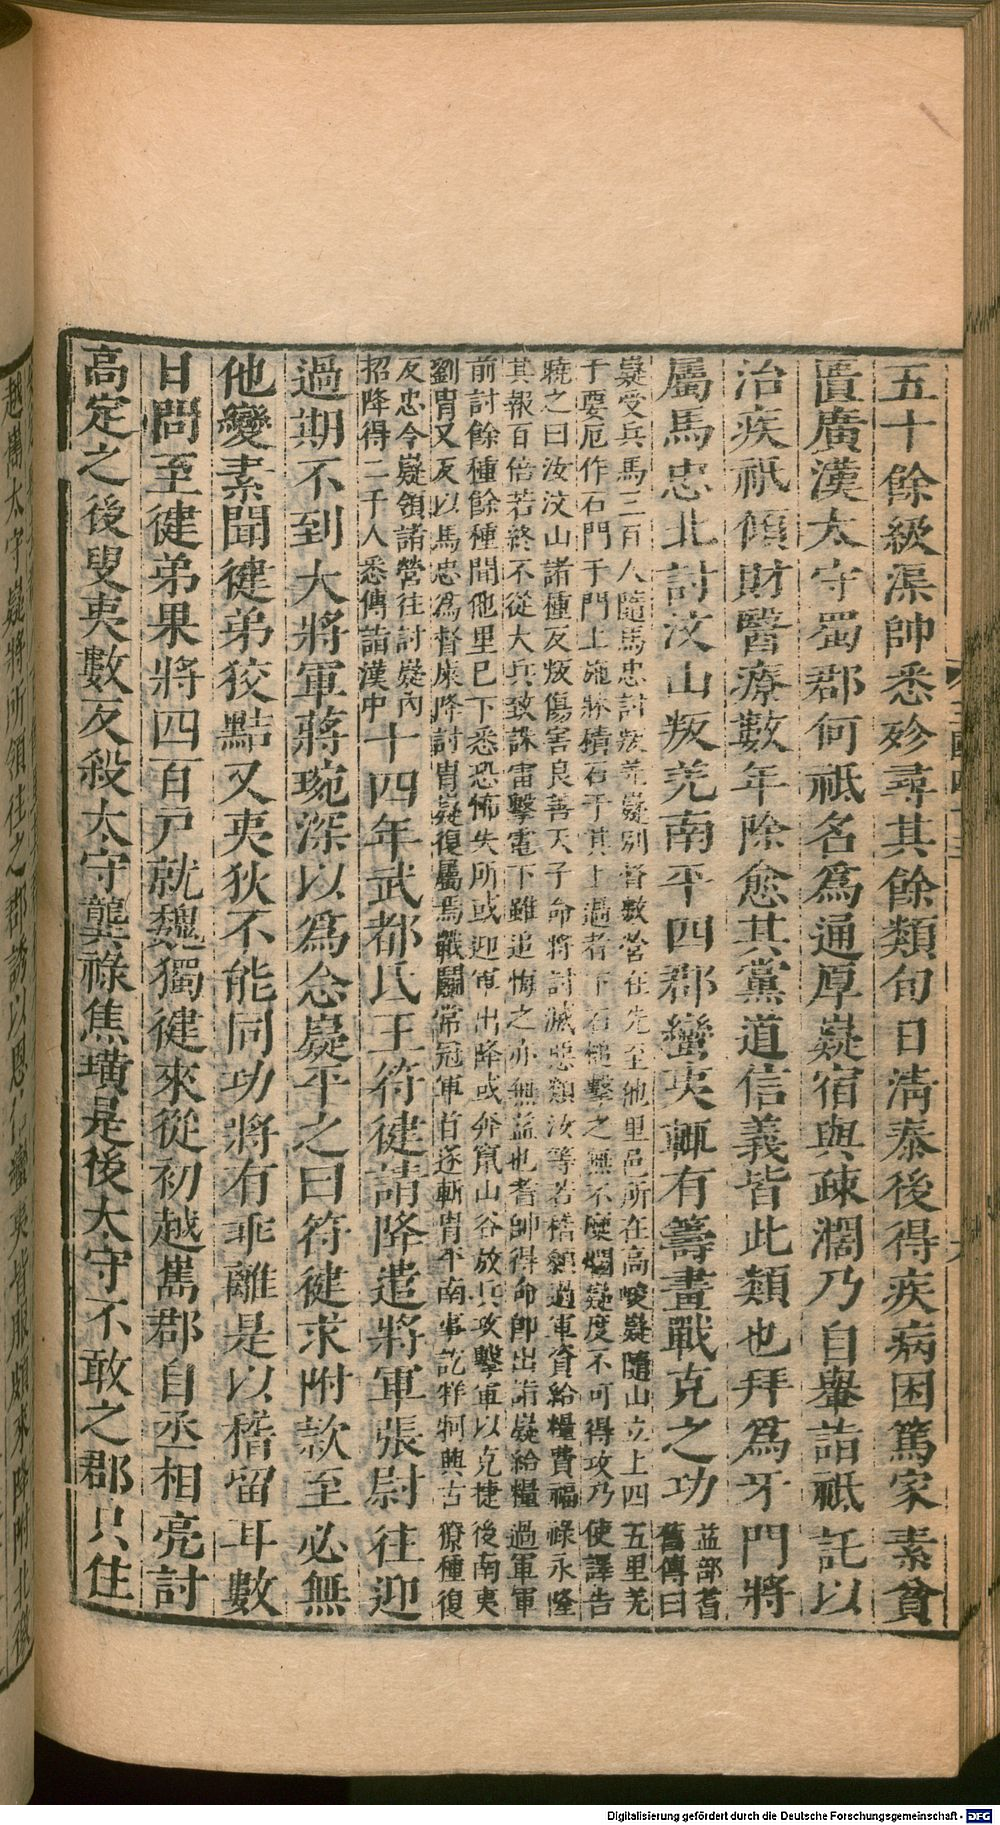 五十餘級渠帥悉殄尋其餘類旬日清泰後得疾病困篤家素貧
匱廣漢太守蜀郡何祗名爲通厚嶷宿與疎濶乃自轝詣祗託以
治疾祗傾財醫療數年除愈其黨道信義皆此類也拜爲牙門將
屬馬忠北討汶山叛羌南平四郡蠻夷輒有籌畫戰克之功
益部耆
舊傳曰
嶷受兵馬三百人隨馬忠討叛羌嶷別督數營在先至他里邑所在高峻嶷隨山立上四五里羌
于要厄作石門于門上施牀積石于其上過者下石槌擊之無不糜爛嶷度不可得攻乃使譯告
曉之曰汝汶山諸種反叛傷害良善天子命將討滅惡類汝等若稽顙過軍資給糧費福祿永隆
其報百倍若終不從大兵致誅雷擊電下雖追悔之亦無益也耆帥得命卽出詣嶷給糧過軍軍
前討餘種餘種聞他里已下悉恐怖失所或迎軍出降或奔竄山谷放兵攻擊軍以克捷後南夷
劉冑又反以馬忠爲督庲降討冑嶷復屬焉戰鬭常冠軍首遂斬冑平南事訖牂牁興古獠種復
反忠令嶷領諸營往討嶷內
招降得二千人悉傳詣漢中
十四年武都氐王符健請降遣將軍張尉往迎
過期不到大將軍蔣琬深以爲念嶷平之曰符健求附款至必無
他變素聞健弟狡黠又夷狄不能同功將有乖離是以稽留耳數
日問至健弟果將四百戸就魏獨健來從初越嶲郡自丞相亮討
高定之後叟夷數反殺太守龔祿焦璜是後太守不敢之郡只住
三國四十三
六
越嶲太守嶷將所領往之郡誘以恩仁蠻夷皆服頗來降附北徼
Digitalisierung gefördert durch die Deutsche Forschungsgemeinschaft - DFG